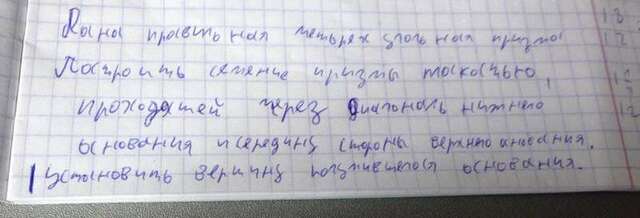 Дана правильная четырех угольная призма
Построить сечение призмы плоскостью,
проходящей через диагональ нижнего
основания и середину стороны верхнего основания.
Установить вершину получившегося основания.